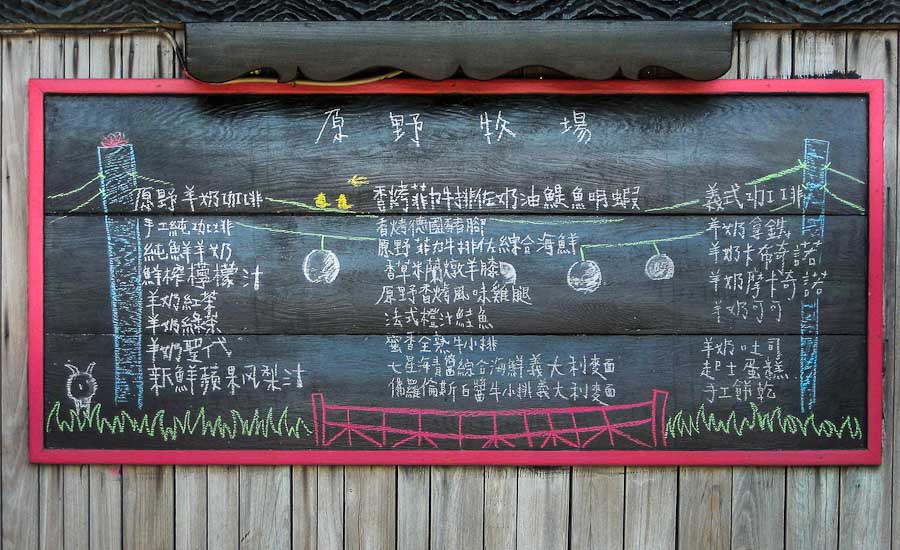 原野牧場
原野羊奶咖啡
手工純咖啡
純鮮羊奶
鮮榨檸檬汁
羊奶紅茶
羊奶綠茶
羊奶聖代
新鮮蘋果凤梨汁
香烤菲力牛排佐奶油鯷魚明蝦
香烤德國豬腳
原野菲力牛排佐綜合海鮮
香草米蘭燉羊膝
原野香烤風味雞腿
法式橙汁鮭魚
蜜香全熟牛小排
七星海青醬綜合海鮮義大利麵
佛羅倫斯白醬牛小排義大利麵
義式咖啡
羊奶拿鐵
羊奶卡布奇諾
羊奶摩卡奇諾
羊奶可可
羊奶吐司
起士蛋糕
手工餅乾